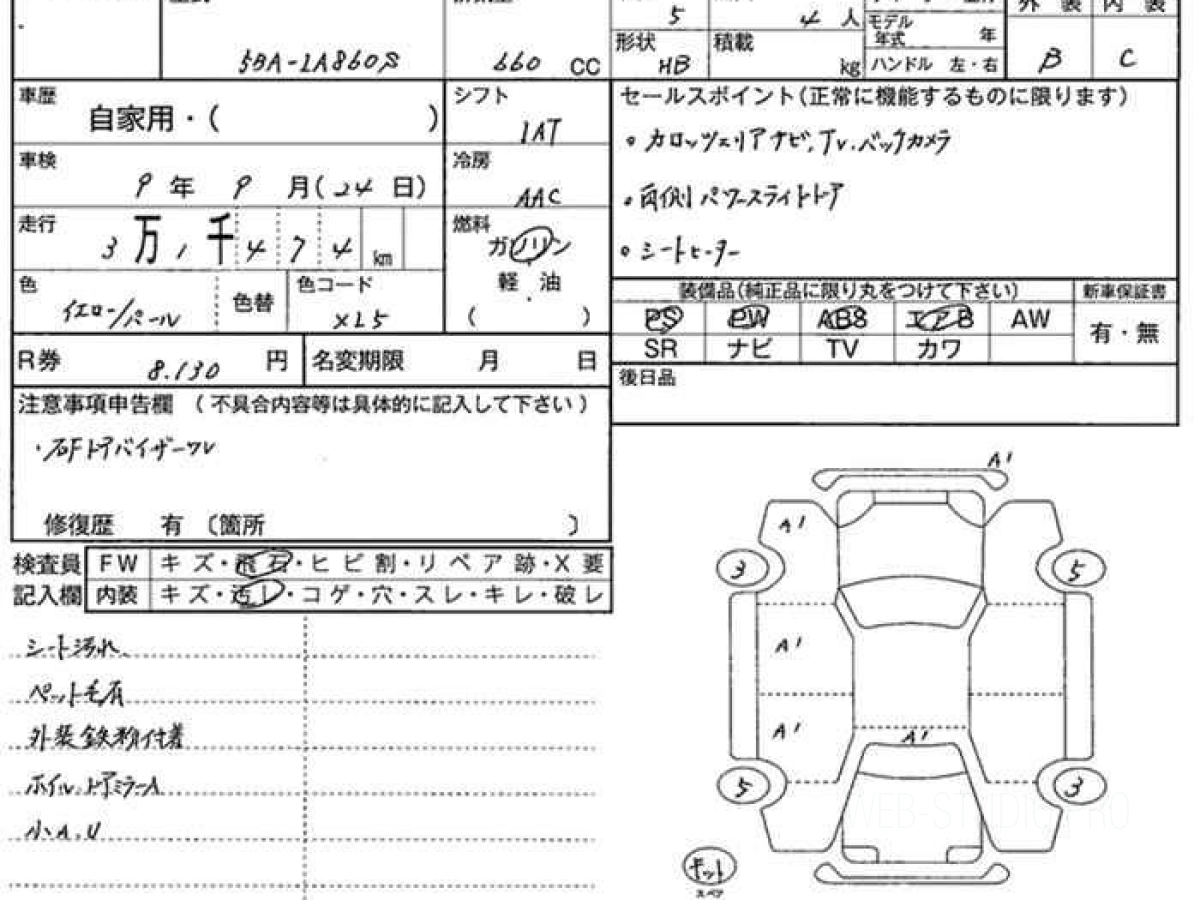 5 4 人
モデル
年式 年
外装 内装
5BA-LA860S
660 CC
形状 HB
積載 kg
ハンドル 左・右
B C
車歴
自家用・( )
シフト
IAT
セールスポイント(正常に機能するものに限ります)
・カロッツェリアナビ,TV,バックカメラ
車検
9年 9月(24日)
冷房
AAC
・両側パワースライドドア
走行
3万1千474km
燃料
ガソリン
軽油
( )
・シートヒーター
色
イエロー/パール
色替
色コード
XL5
装備品(純正品に限り丸をつけて下さい)
新車保証書
PS PW ABS エアB AW
有・無
SR ナビ TV カワ
R券 8.130 円
名変期限 月 日
後日品
注意事項申告欄 (不具合内容等は具体的に記入して下さい)
・右Fドアバイザーワレ
修復歴 有〔箇所 〕
検査員
記入欄
FW キズ・飛石・ヒビ割・リペア跡・X要
内装 キズ・汚レ・コゲ・穴・スレ・キレ・破レ
シート汚れ
ペット毛有
外装鉄粉付着
ホイル,ドアミラーA
小A,U
A1
A1
3 5
A1
A1
A1
5 3
キット
スペア
WEB-STUDIO.PRO